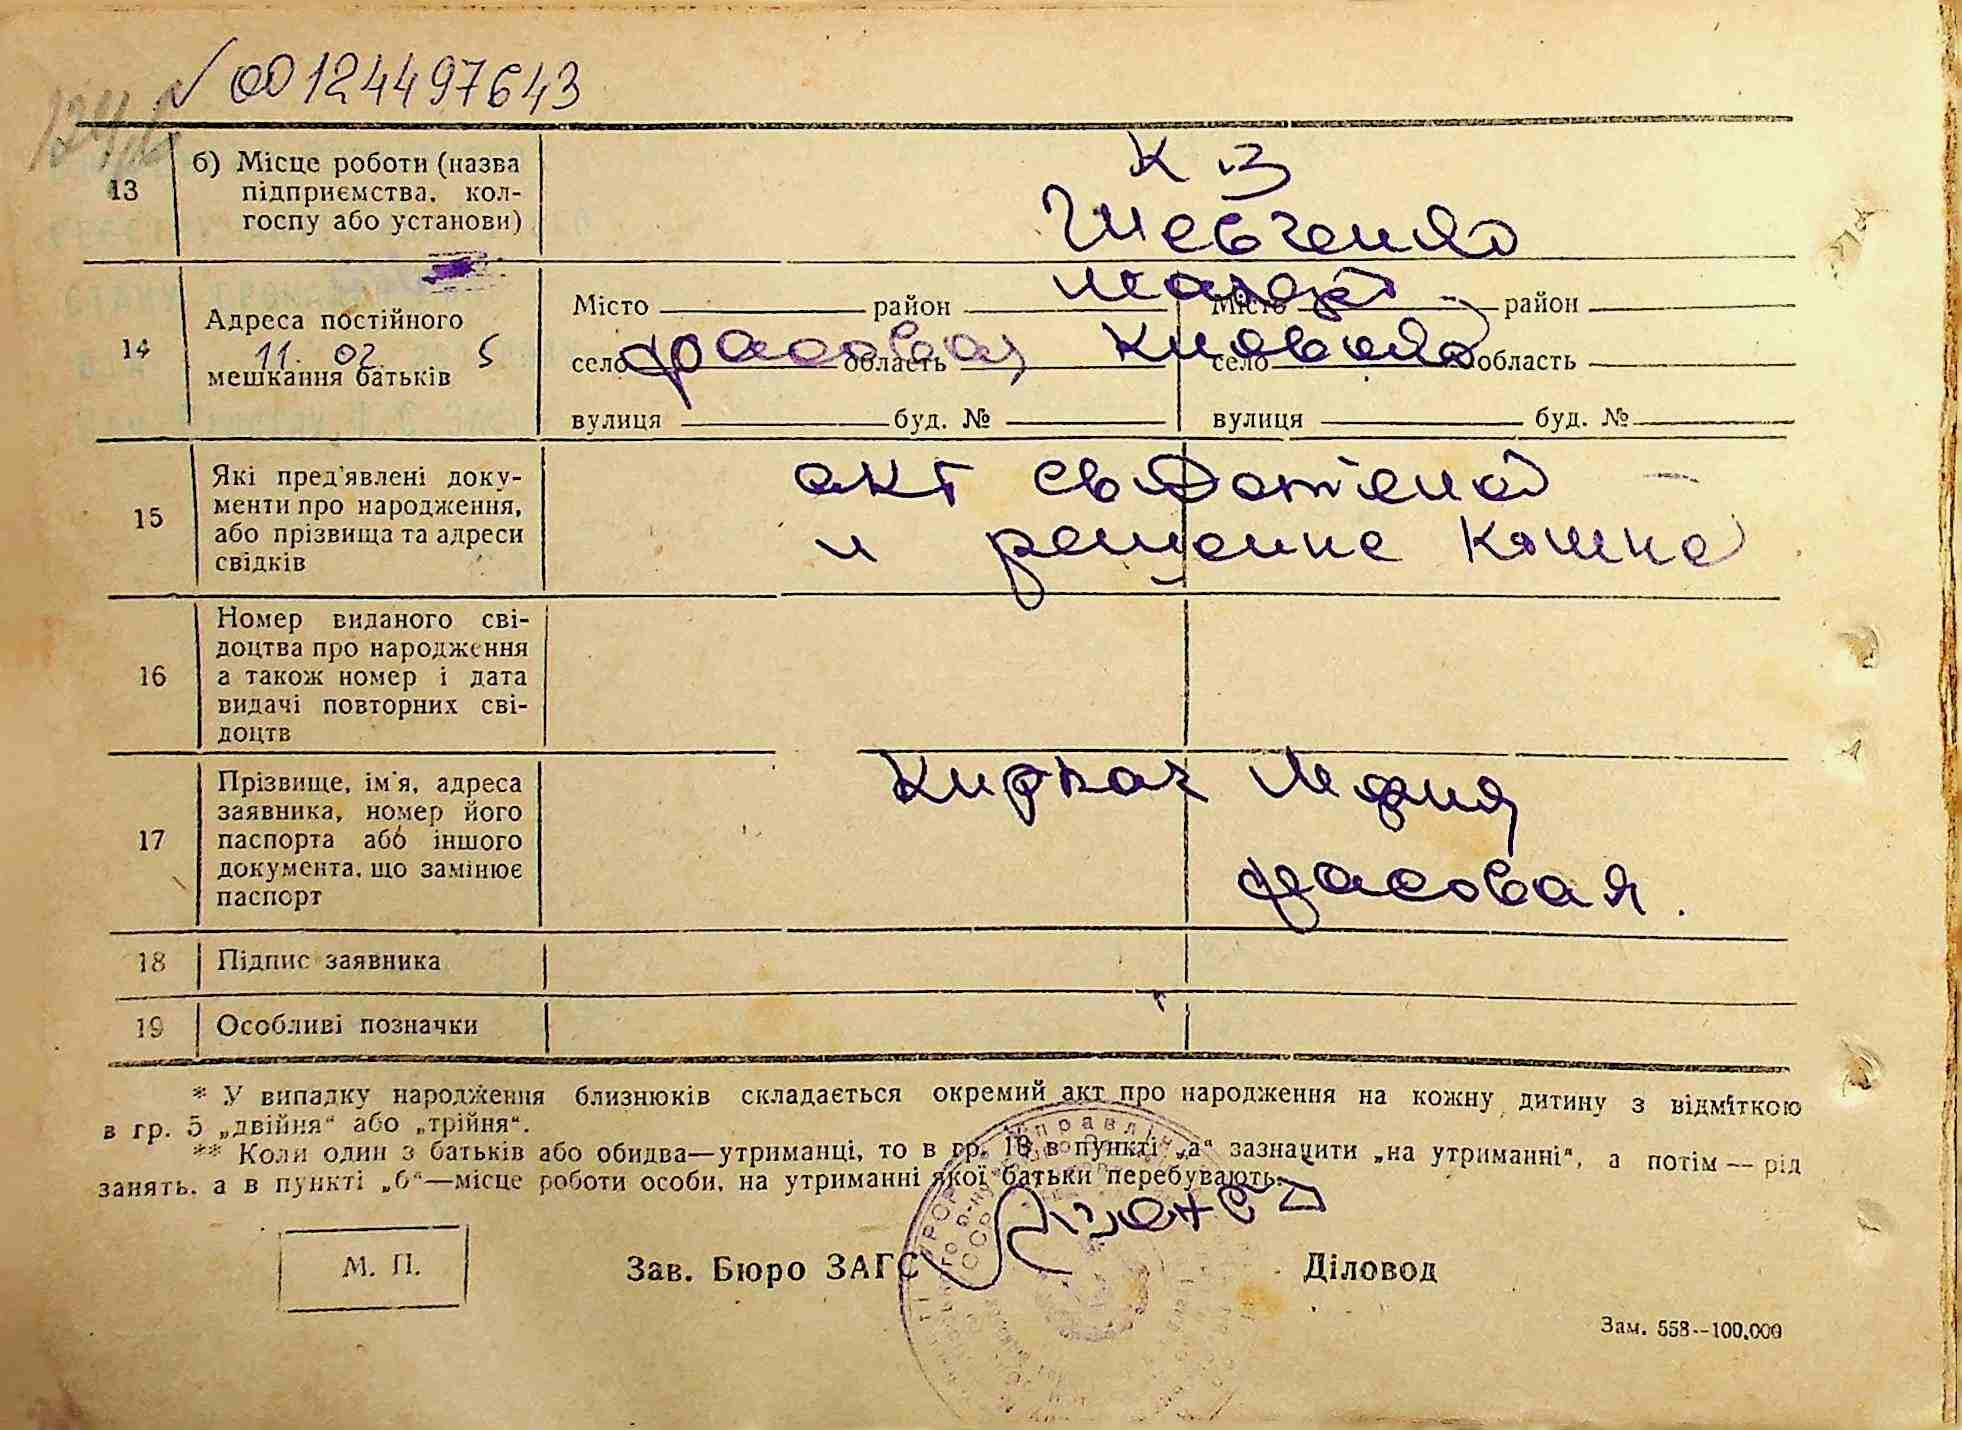 00124497643
13
б) Місце роботи (назва
підприємства, кол-
госпу або установи)
К З
Шевченка
14
Адреса постійного
11. 02. 5
мешкання батьків
Місто район Місто район
село область село область
фасовая
вулиця буд. № вулиця буд. №
15
Які пред'явлені доку-
менти про народження,
або прізвища та адреси
свідків
акт
и решение
16
Номер виданого сві-
доцтва про народження
а також номер і дата
видачі повторних сві-
доцтв
17
Прізвище, ім'я, адреса
заявника, номер його
паспорта або іншого
документа, що замінює
паспорт
Мария
фасовая.
18 Підпис заявника
19 Особливі позначки
* У випадку народження близнюків складається окремий акт про народження на кожну дитину з відміткою
в гр. 5 „двійня“ або „трійня“.
** Коли один з батьків або обидва—утриманці, то в гр. 13 в пункті „а“ зазначити „на утриманні“, а потім — рід
занять, а в пункті „б“—місце роботи особи, на утриманні якої батьки перебувають.
М. П.
Зав. Бюро ЗАГС Діловод
Зам. 558--100.000